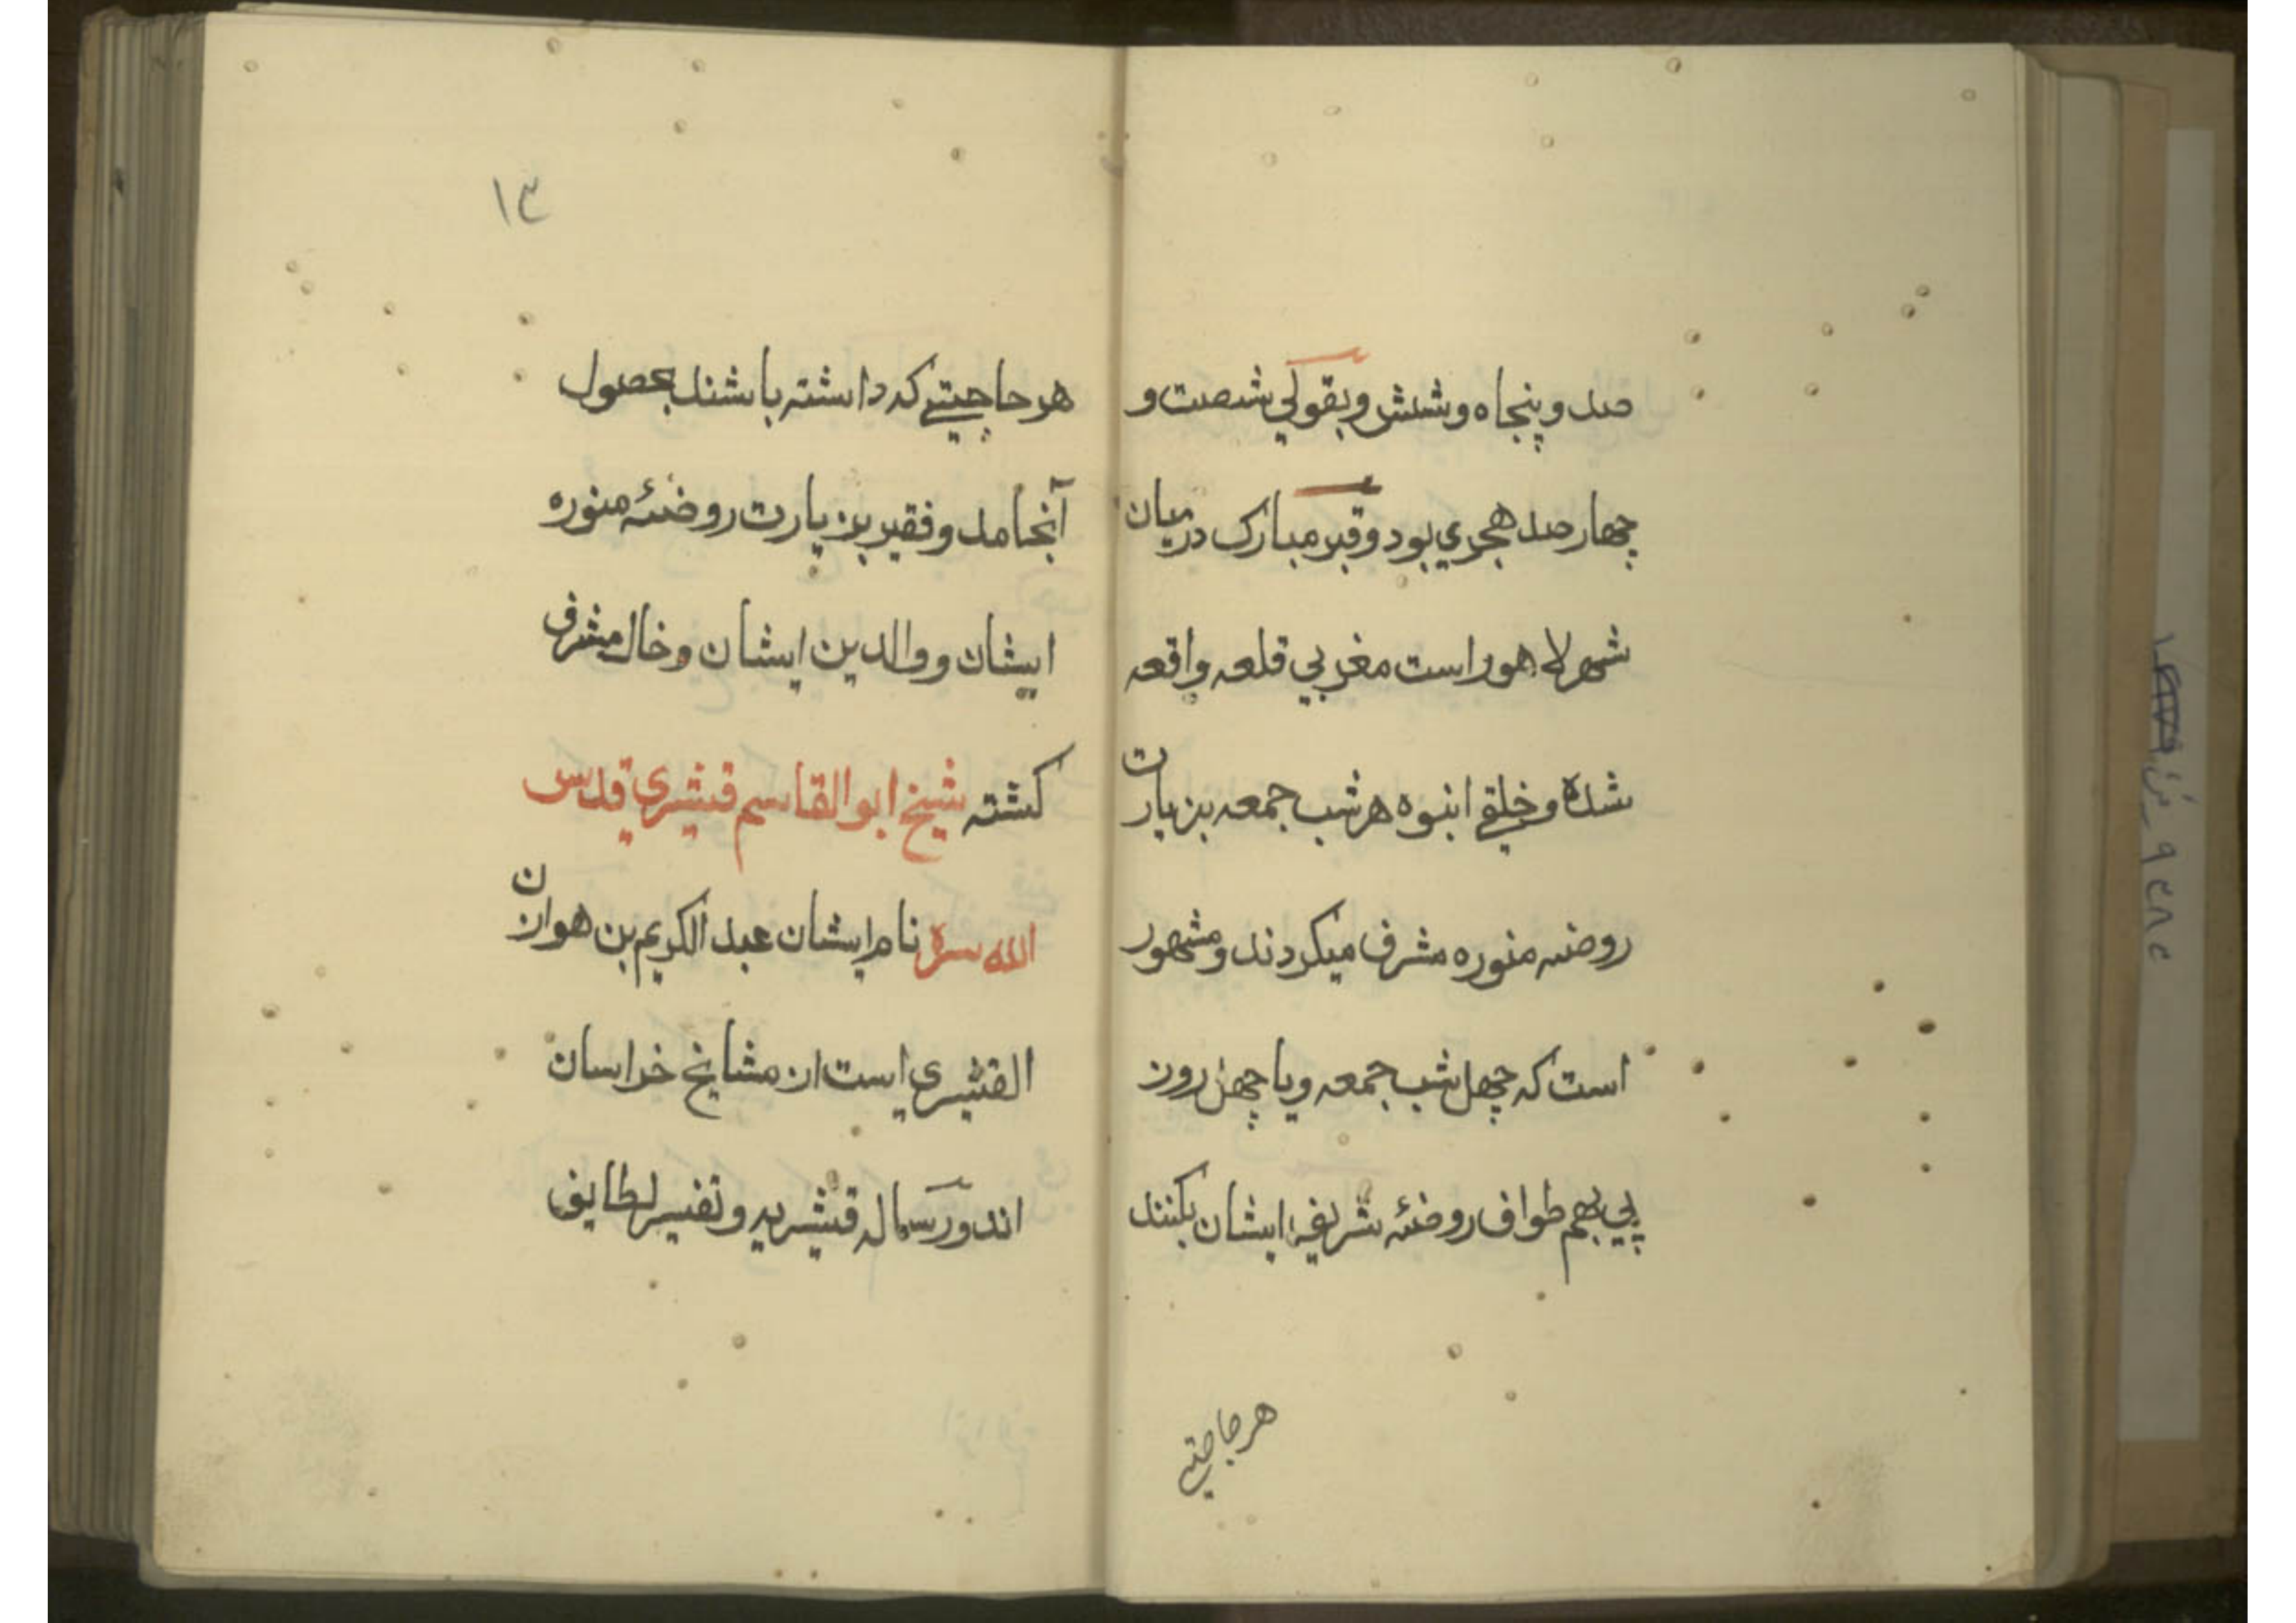 صد و پنجاه و شش و بقولي شصت و
چهار صد هجري بود و قبر مبارك درميان
شهر لاهور است مغربي قلعه واقعه
شده و خلقي انبوه هر شب جمعه بزيارت
روضه منوره مشرف ميكردند و مشهور
است كه چهل شب جمعه و يا چهل روز
پي بهم طواف روضئه شريفه ايشان بكنند
هر حاجتي
١٣
هر حاجتے كه داشته باشند بحصول
آنجامد و فقير بزيارت روضئه منوره
ايشان و والدين ايشان و خال مشرف
كشته شيخ ابو القاسم قشيري قدس
الله سره نام ايشان عبد الكريم بن هوازن
القشيري است از مشايخ خراسان
اند و رساله قشيريه و تفسير لطايف